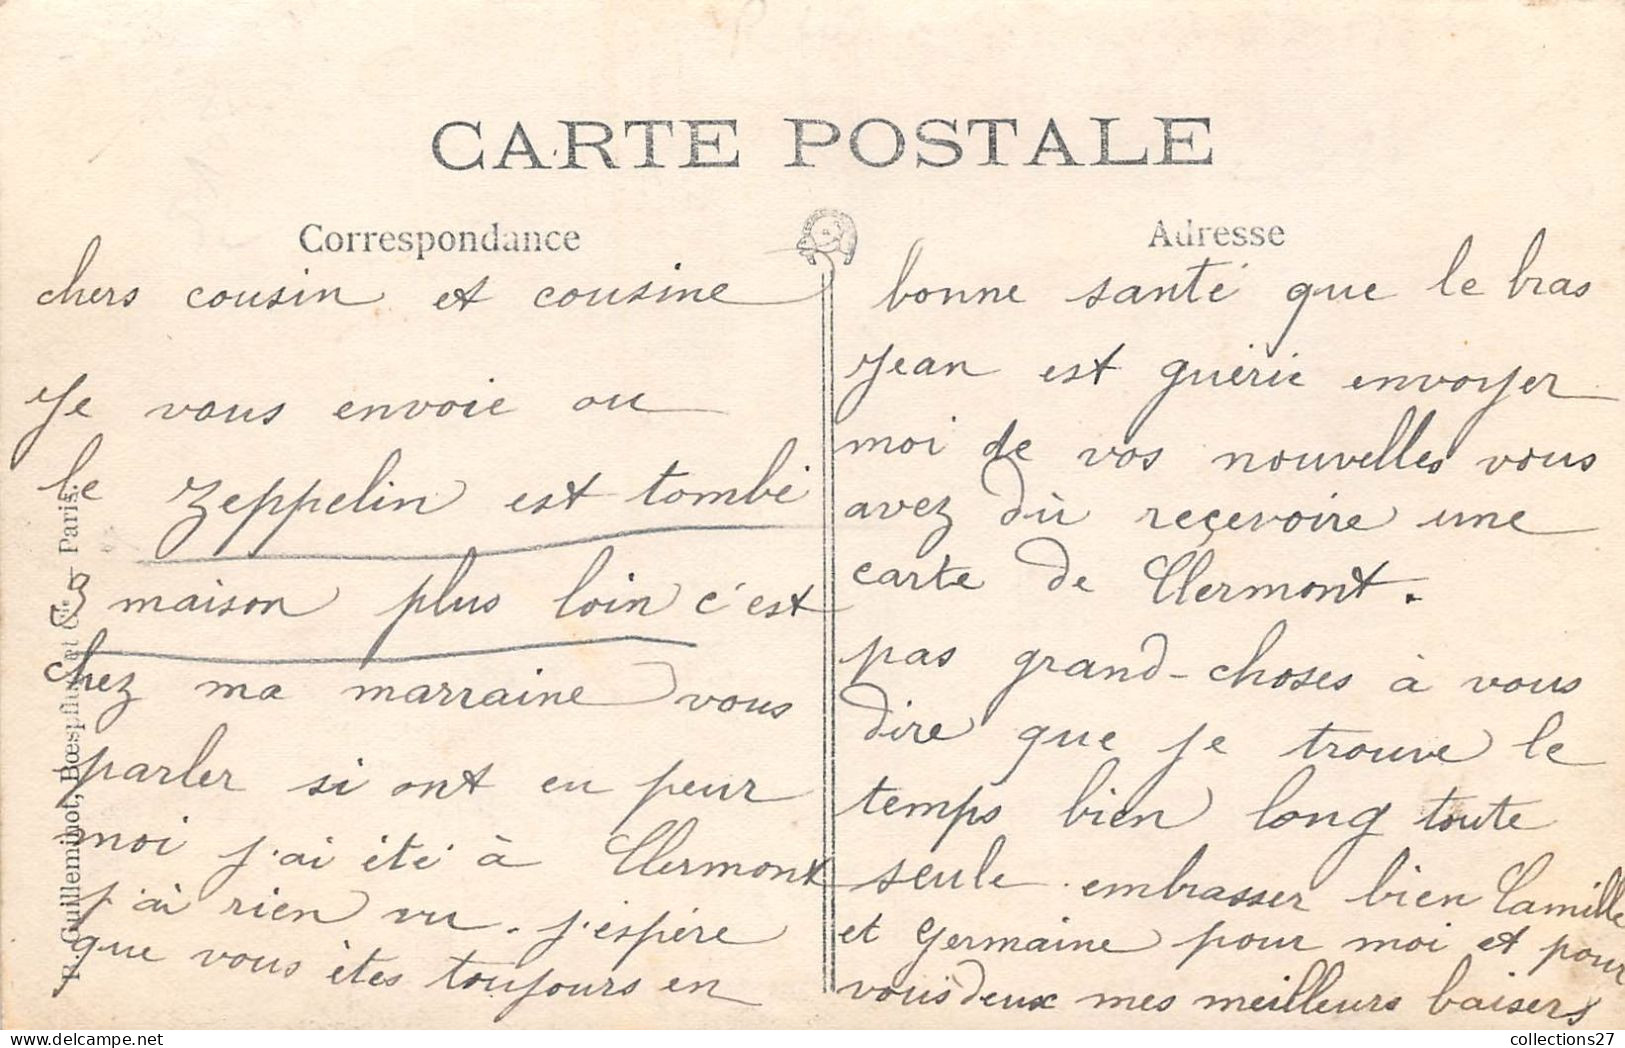 CARTE POSTALE
Correspondance
chers cousin et cousine
Je vous envoie ou
le zeppelin est tombé
3 maison plus loin c'est
chez ma marraine vous
parler si ont eu peur
moi j'ai été à Clermont
j'ai rien vu. j'espère
que vous êtes toujours en
Adresse
bonne santé que le bras
Jean est guérie envoyer
moi de vos nouvelles vous
avez dù reçevoire une
carte de Clermont.
pas grand-choses à vous
dire que je trouve le
temps bien long toute
seule. embrasser bien Camille
et Germaine pour moi et pour
vous deux mes meilleurs baisers
R. Guilleminot, Bœspflug et Cie – Paris.
collections27